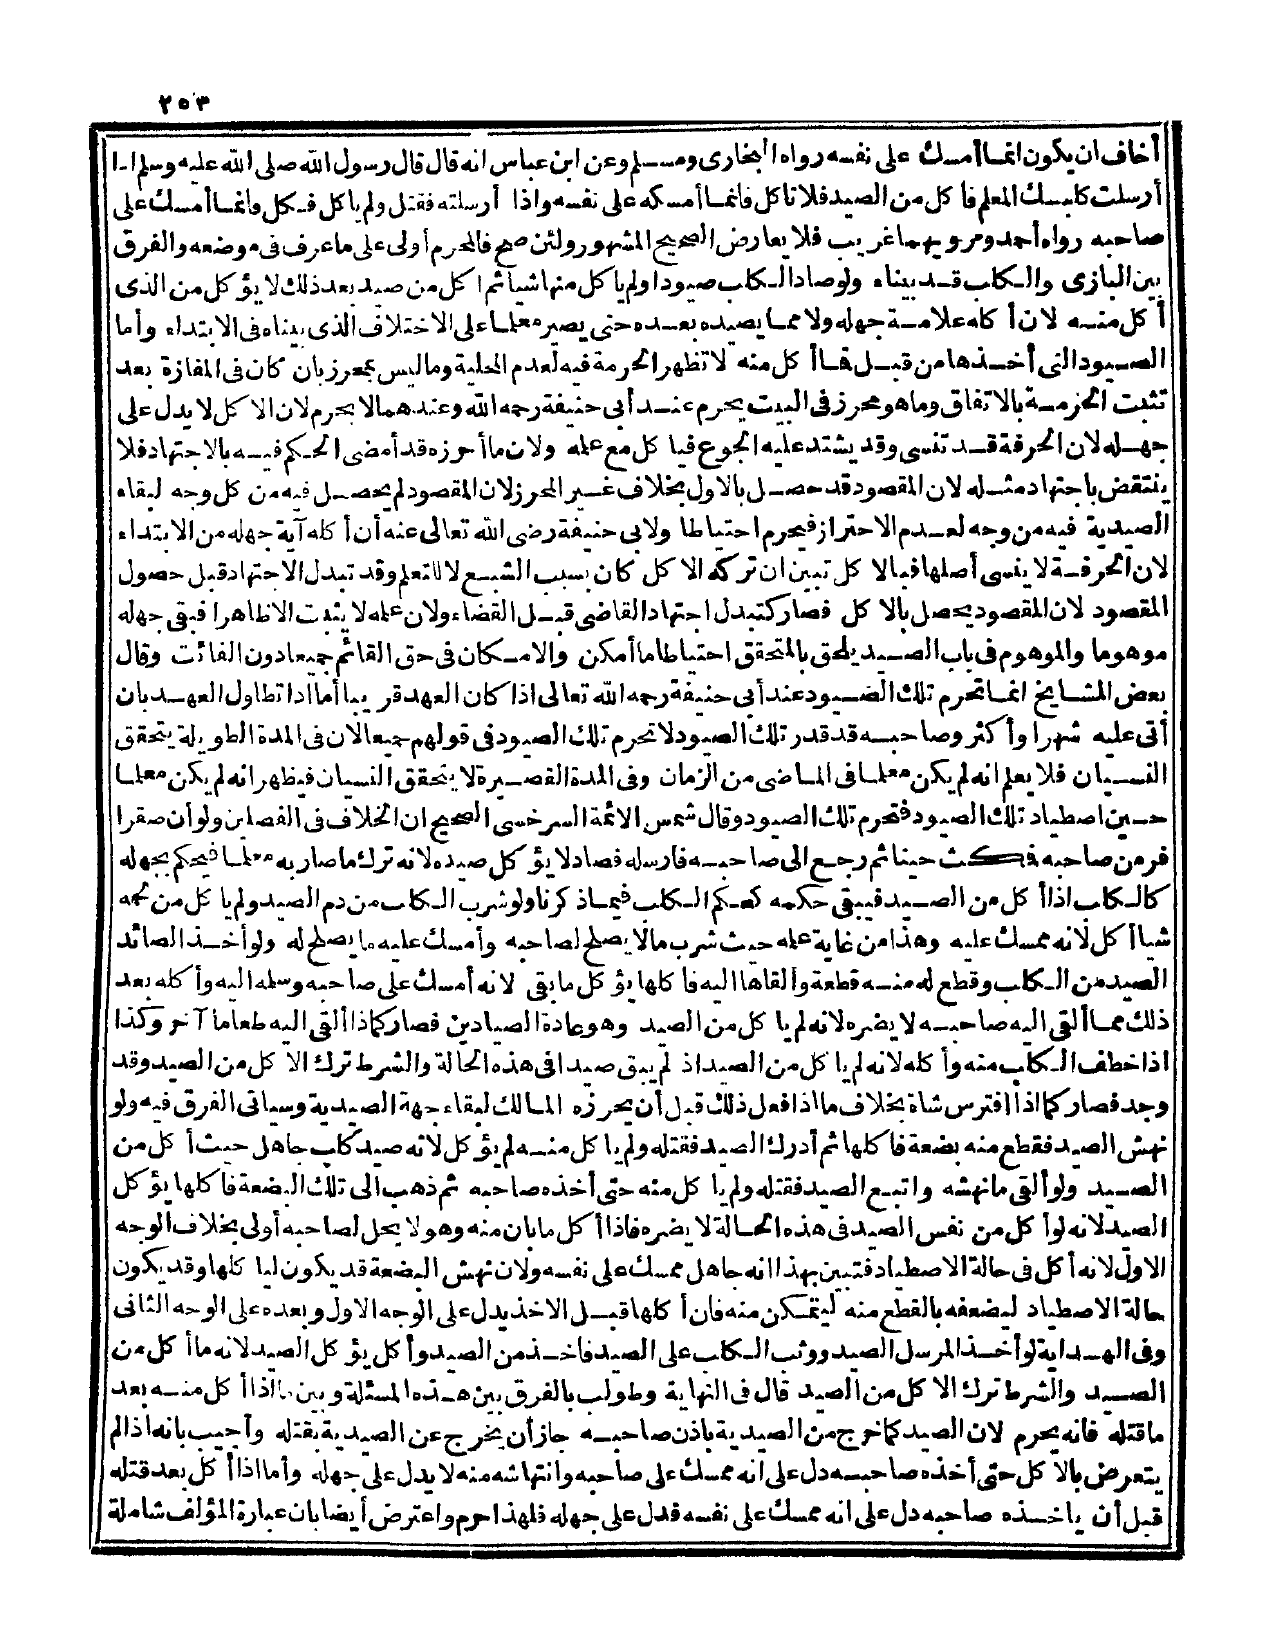 ٢٥٣
أخاف ان يكون انما أمسك على نفسه رواه البخارى ومسلم وعن ابن عباس انه قال قال رسول الله صلى الله عليه وسلم اذا
أرسلت كلبك المعلم فأكل من الصيد فلا تأكل فانما أمسكه على نفسه واذا أرسلته فقتل ولم يأكل فكل فانما أمسك على
صاحبه رواه أحمد ومرويهما غريب فلا يعارض الصحيح المشهور ولئن صح فالمحرم أولى على ما عرف فى موضعه والفرق
بين البازى والكلب قد بيناه ولو صاد الكلب صيودا ولم يأكل منها شيأ ثم اكل من صيد بعد ذلك لا يؤكل من الذى
أكل منه لان أكله علامة جهله ولا مما يصيده بعده حتى يصير معلما على الاختلاف الذى بيناه فى الابتداء وأما
الصيود التى أخذها من قبل فما أكل منه لا تظهر الحرمة فيه لعدم المحلية وما ليس بمحرز بان كان فى المفازة بعد
تثبت الحرمة بالاتفاق وما هو محرز فى البيت يحرم عند أبى حنيفة رحمه الله وعندهما لا يحرم لان الاكل لا يدل على
جهله لان الحرفة قد تنسى وقد يشتد عليه الجوع فيأكل مع علمه ولان ما أحرزه قد أمضى الحكم فيه بالاجتهاد فلا
ينتقض باجتهاد مثله لان المقصود قد حصل بالاول بخلاف غير المحرز لان المقصود لم يحصل فيه من كل وجه لبقاء
الصيدية فيه من وجه لعدم الاحتراز فيحرم احتياطا ولابى حنيفة رضى الله تعالى عنه أن أكله آية جهله من الابتداء
لان الحرفة لا ينسى أصلها فبالاكل تبين ان تركه الاكل كان بسبب الشبع لا للتعلم وقد تبدل الاجتهاد قبل حصول
المقصود لان المقصود يحصل بالاكل فصار كتبدل اجتهاد القاضى قبل القضاء ولان علمه لا يثبت الا ظاهرا فبقى جهله
موهوما والموهوم فى باب الصيد يلحق بالمتحقق احتياطا ما أمكن والامكان فى حق القائم جميعا دون الفائت وقال
بعض المشايخ انما تحرم تلك الصيود عند أبى حنيفة رحمه الله تعالى اذا كان العهد قريبا أما اذا تطاول العهد بان
أتى عليه شهرا وأكثر وصاحبه قد قدر تلك الصيود لا تحرم تلك الصيود فى قولهم جميعا لان فى المدة الطويلة يتحقق
النسيان فلا يعلم انه لم يكن معلما فى الماضى من الزمان وفى المدة القصيرة لا يتحقق النسيان فيظهر انه لم يكن معلما
حين اصطياد تلك الصيود فتحرم تلك الصيود وقال شمس الائمة السرخسى الصحيح ان الخلاف فى الفصلين ولو أن صقرا
فر من صاحبه فمكث حينا ثم رجع الى صاحبه فارسله فصاد لا يؤكل صيده لانه ترك ما صار به معلما فيحكم بجهله
كالكلب اذا أكل من الصيد فيبقى حكمه كحكم الكلب فيما ذكرنا ولو شرب الكلب من دم الصيد ولم يأكل من لحمه
شيأ أكل لانه ممسك عليه وهذا من غاية علمه حيث شرب ما لا يصلح لصاحبه وأمسك عليه ما يصلح له ولو أخذ الصائد
الصيد من الكلب وقطع له منه قطعة وألقاها اليه فأكلها يؤكل ما بقى لانه أمسك على صاحبه وسلمه اليه وأكله بعد
ذلك مما ألقى اليه صاحبه لا يضره لانه لم يأكل من الصيد وهو عادة الصيادين فصار كما اذا ألقى اليه طعاما آخر وكذا
اذا خطف الكلب منه وأكله لانه لم يأكل من الصيد اذ لم يبق صيدا فى هذه الحالة والشرط ترك الاكل من الصيد وقد
وجد فصار كما اذا افترس شاة بخلاف ما اذا فعل ذلك قبل أن يحرزه المالك لبقاء جهة الصيدية وسيأتى الفرق فيه ولو
نهش الصيد فقطع منه بضعة فأكلها ثم أدرك الصيد فقتله ولم يأكل منه لم يؤكل لانه صيد كلب جاهل حيث أكل من
الصيد ولو ألقى ما نهشه واتبع الصيد فقتله ولم يأكل منه حتى أخذه صاحبه ثم ذهب الى تلك البضعة فأكلها يؤكل
الصيد لانه لو أكل من نفس الصيد فى هذه الحالة لا يضره فاذا أكل ما بان منه وهو لا يحل لصاحبه أولى بخلاف الوجه
الاول لانه أكل فى حالة الاصطياد فتبين بهذا انه جاهل ممسك على نفسه ولان نهش البضعة قد يكون ليأكلها وقد يكون
حالة الاصطياد ليضعفه بالقطع منه ليتمكن منه فان أكلها قبل الاخذ يدل على الوجه الاول وبعده على الوجه الثانى
وفى الهداية لو أخذ المرسل الصيد ووثب الكلب على الصيد فأخذ من الصيد وأكل يؤكل الصيد لانه ما أكل من
الصيد والشرط ترك الاكل من الصيد قال فى النهاية وطولب بالفرق بين هذه المسئلة وبين ما اذا أكل منه بعد
ما قتله فانه يحرم لان الصيد كما خرج من الصيدية باذن صاحبه جاز أن يخرج عن الصيدية بقتله وأجيب بانه اذا لم
يتعرض بالاكل حتى أخذه صاحبه دل على انه ممسك على صاحبه وانتهاشه منه لا يدل على جهله وأما اذا أكل بعد قتله
قبل أن يأخذه صاحبه دل على انه ممسك على نفسه فدل على جهله فلهذا حرم واعترض أيضا بان عبارة المؤلف شاملة